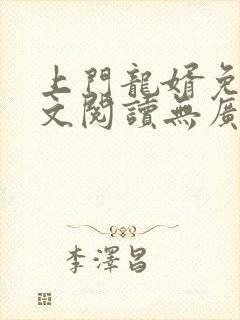 上門龍婿免
文閱讀無廣
李澤昌